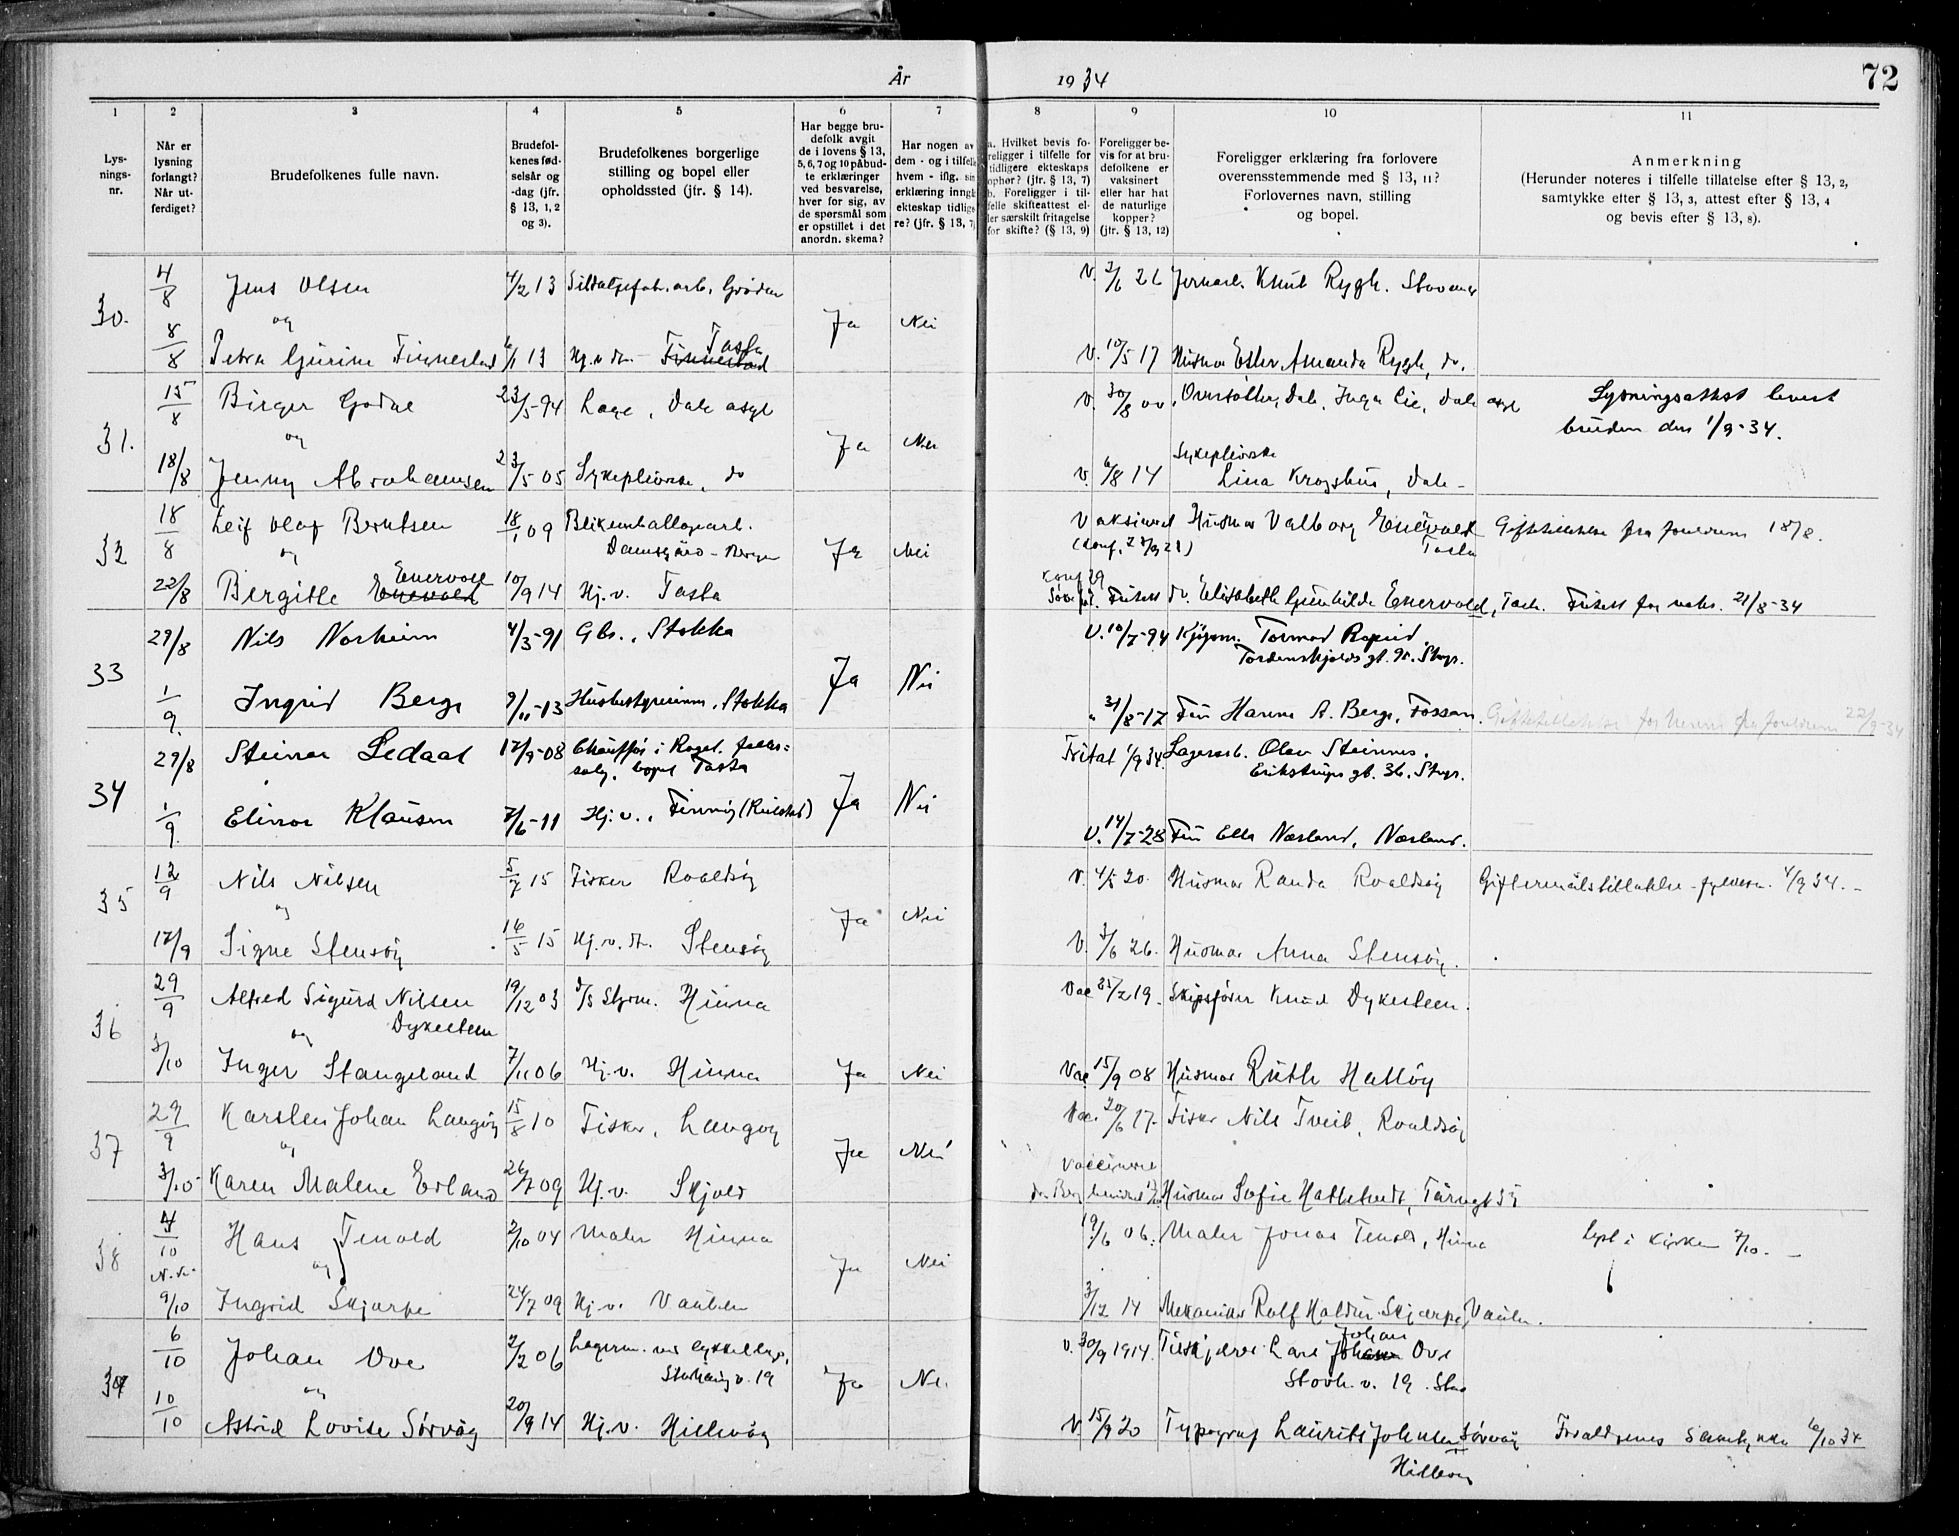 År 1934
72
1 2 3 4 5 6 7 8 9 10 11
Lys-
nings-
nr.
Når er
lysning
forlangt?
Når ut-
ferdiget?
Brudefolkenes fulle navn.
Brudefol-
kenes fød-
selsår og
-dag (jfr.
§ 13, 1, 2
og 3).
Brudefolkenes borgerlige
stilling og bopel eller
opholdssted (jfr. § 14).
Har begge bru-
defolk avgit
de i lovens § 13,
5, 6, 7 og 10 påbud-
te erklæringer
ved besvarelse,
hver for sig, av
de spørsmål som
er opstillet i det
anordn. skema?
Har nogen av
dem - og i tilfelle
hvem - iflg. sin
erklæring inngå
ekteskap tidlige
re? (jfr. § 13, 7)
a. Hvilket bevis fo-
religger i tilfelle for
tidligere ekteskaps
ophør? (jfr. § 13, 7)
b. Foreligger i til-
felle skifteattest el-
ler særskilt fritagelse
for skifte? (§ 13, 9)
Foreligger be-
vis for at bru-
defolkene er
vaksinert
eller har hat
de naturlige
kopper?
(jfr. § 13, 12)
Foreligger erklæring fra forlovere
overensstemmende med § 13, 11?
Forlovernes navn, stilling
og bopel.
Anmerkning
(Herunder noteres i tilfelle tillatelse efter § 13, 2,
samtykke efter § 13, 3, attest efter § 13, 4
og bevis efter § 13, 8).
30. 4/8 Jens Olsen 4/2 13 Sildoljefabr.arb. Grøden V. 26 Jernarb. Knut Rygh. Stavanger
og Ja Nei
8/8 Petra Gurine Finnestad 13 Hj.v. dtr. Finnestad Tasta V. 10/5 17 Husmor Ester Amanda Rygh, do.
31. 15/8 Birger Godal 23/5-94 Læge, Dale asyl V. 30/8 00 Oversøster, Dale, Inga Lie, Dale asyl Lysningsattest levert
og Ja Nei bruden den 1/9-34.
18/8 Jenny Abrahamsen 23/5 05 Sykepleierske, do V. 6/8 14 Sykepleierske
Lina Krogshus, Dale -
32 18/8 Leif Olaf Berntsen 18/1 09 Blikemballagearb. Vaksinert Husmor Valborg Enervold Giftetillatelse fra fouldrum 18/8.
og Damsgård - Bergen Ja Nei (Konf. 21) Tasta
22/8 Bergitte Enevold Enervold 10/9 14 Hj. v. Tasta Konf 29
Fritatt Fr. Elisabeth Gunhilde Enervold, Tasta. Fritatt for vaks. 21/8-34
33 29/8 Nils Norheim 4/3-91 Gbr., Stokka V. 10/7-94 Kjøpm. Tormod
Ja Nei Tordenskjolds gt. Stvgr.
1/9. Ingrid Berge 9/11-13 Husbestyrerinne, Stokka " 31/8-17 Fru Hanna A. Berge, Fossan. Giftetillatelse for 22/9-34
34 29/8 Steinar Ledaal 17/9-08 Chauffør i Rogal. felles-
salg, bopel Tasta Fritat 1/9 34. Lagerarb. Olav Steinnes,
Ja Nei Erikstrups gt. 36. Stvgr.
1/9. Elinor Klausen 7/6-11 Hj. v., Finnøy V. 14/7-28 Fru Ella Nærland, Nærland.
35 12/9 Nils Nilsen 5/7 15 Fisker Roaldsøy V. 4/5 20 Husmor Randa Roaldsøy Giftermålstillatelse - fylkesm. 4/9 34. -
og Ja Nei
17/9 Signe Stensøy 16/5 15 Hj. v. dt. Stensøy V. 3/6 26. Husmor Anna Stensøy.
36 29/9 Alfred Sigurd Nilsen 19/12 03 d/s Styrm. Hinna Vac 19. Skipsfører Knud Dykesteen.
og Dykesteen
3/10 Inger Stangeland 7/11 06 Hj. v. Hinna Ja Nei Vac 15/9 08 Husmor Ruth Halsøy
37 29/9 Karsten Johan Langøy 15/8 10 Fisker, Langøy Vac. 20/6 17. Fisker Nils Tveit, Roaldsøy
og Ja Nei Vaccinert
3/10 Karen Malene Erland 26/7 09 Hj. v. Skjold Husmor Sofie Hattetvedt, Tårngt 35
38 4/10 Hans Tenold 2/10 04 Maler Hinna 19/6 06. Maler Jonas Tenold, Hinna Lyst i kirken 7/10. -
og Ja Nei
9/10 Ingrid Skjærpe 24/7 09 Hj. v. Vaulen 3/12 14 Mekaniker Rolf Skjærpe, Vaulen.
39 6/10 Johan Ove 2/2 06 Lagerm. ved V. 30/9 1914. Lars Johan Ove
og 19 Ja Nei 19
10/10 Astrid Lovise Sørvåg 20/9 14 Hj. v. Hillevåg V. 15/9 20 Typograf Laurits Johnsen Sørvåg Foreldrenes samtykke 6/10 34
Hillevåg